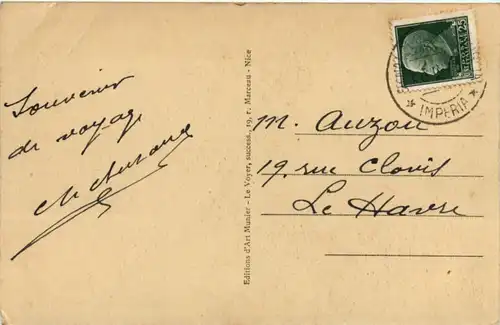 Souvenir
de voyage
Editions d'Art Munier - Le Voyer, success., 19, r. Marceau - Nice
25
IMPERIA
M. Auzou
19, rue Clovis
Le Havre